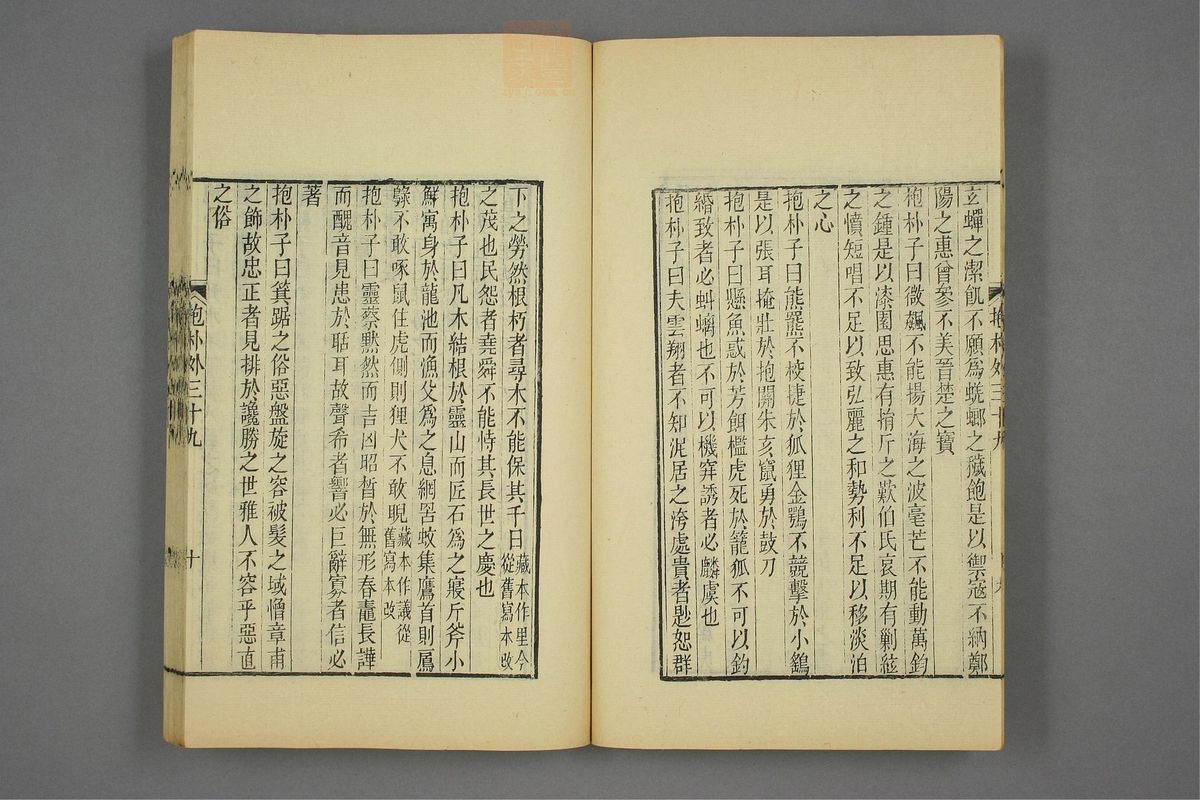 玄蟬之潔飢不願爲蜣蜋之穢飽是以禦寇不納鄭
陽之惠曾參不美晉楚之寶
抱朴子曰微飆不能揚大海之波毫芒不能動萬鈞
之鍾是以漆園思惠有捐斤之歎伯氏哀期有剿絃
之憤短唱不足以致弘麗之和勢利不足以移淡泊
之心
抱朴子曰熊羆不校捷於狐狸金鶚不競擊於小鷂
是以張耳掩壯於抱關朱亥竄勇於鼓刀
抱朴子曰懸魚惑於芳餌檻虎死於籠狐不可以釣
緡致者必虯螭也不可以機穽誘者必麟虞也
抱朴子曰夫雲翔者不知泥居之洿處貴者尟恕群
抱朴外三十九
下之勞然根朽者尋木不能保其千日藏本作里今從舊寫本改
之茂也民怨者堯舜不能恃其長世之慶也
抱朴子曰凡木結根於靈山而匠石爲之寢斤斧小
鮮寓身於龍池而漁父爲之息網罟蚊集鷹首則鳸
鷃不敢啄鼠住虎側則狸犬不敢睨藏本作議從舊寫本改
抱朴子曰靈蔡默然而吉凶昭晢於無形春鼃長譁
而醜音見患於聒耳故聲希者響必巨辭寡者信必
著
抱朴子曰箕踞之俗惡盤旋之容被髮之域憎章甫
之飾故忠正者見排於讒勝之世雅人不容乎惡直
之俗
抱朴外三十九
十